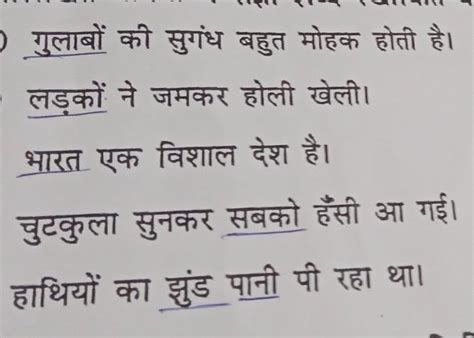 गुलाबों की सुगंध बहुत मोहक होती है।
लड़कों ने जमकर होली खेली।
भारत एक विशाल देश है।
चुटकुला सुनकर सबको हँसी आ गई।
हाथियों का झुंड पानी पी रहा था।